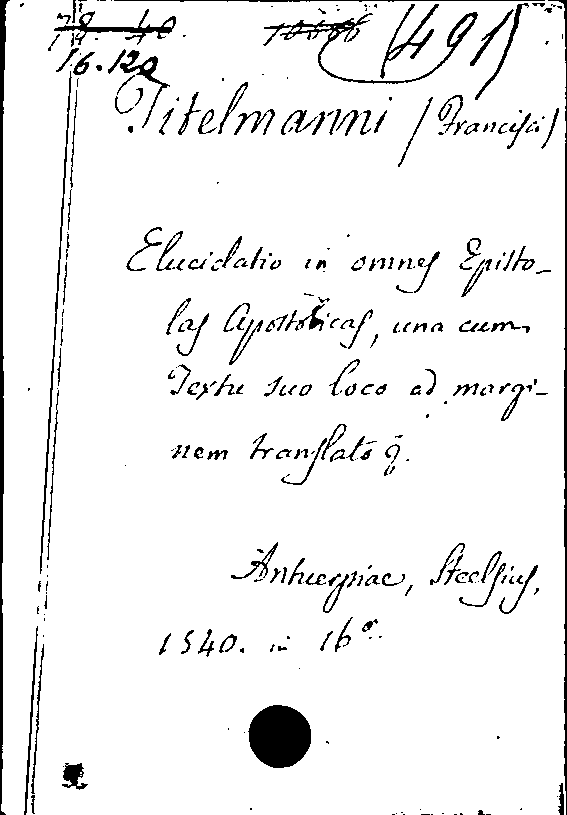 78. 40. (491)
16.120
Titelmanni / (Francisci)
Elucidatio in omnes Episto-
las Apostolicas, una cum
Textu suo loco ad margi-
nem translato
Antuerpiae, Steelsius,
1540. in 16°.